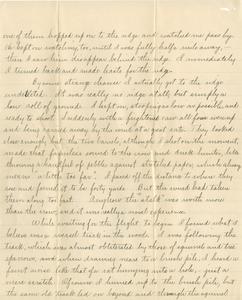 one of them hopped up on to the ridge and watched me pass by
He kept on watching, too, until I was fully half a mile away,—
then I saw him disappear behind the ridge. I immediately
I turned back and made haste for the ridge.
By some strange chance I actually got to the ridge
It was really no ridge at all, but simply a
low roll of grounds. I kept on, stooping as low as possible, and
ready to shoot. Suddenly with a frightened
and being carried away by the wind at a great rate. They looked
low enough, but the two barrels, although I shot on the moment,
made that fugacious sound to this
throwing a handful of pebbles against stretched paper, which always
means "a little too far." I paced off the distance to where they
rose and found it to be forty yards. But the wind had taken
them along too fast. Anyhow the stalk was worth more
than the crow, and it was really a novel experience.
While waiting for the flight to begin I found what I
believe was a weasel track in the woods. I was following the
track, which was almost obliterated by those of squirrels and tree
sparrows, and when drawing near to a brush pile, I heard a
faint noise like that of a rat hunying into a hole, just a
mere scratch. Of course I hurried up to the brush pile, but
the same old track led on beyond and through the